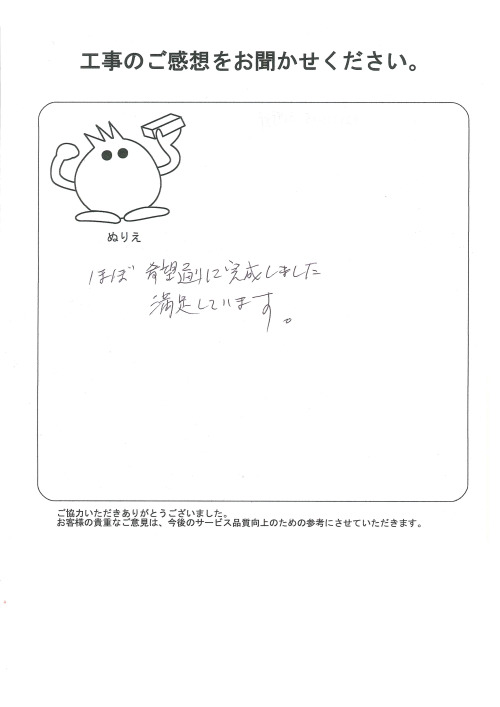 工事のご感想をお聞かせください。
ぬりえ
ほぼ 希望通りに完成しました
満足しています。
ご協力いただきありがとうございました。
お客様の貴重なご意見は、今後のサービス品質向上のための参考にさせていただきます。